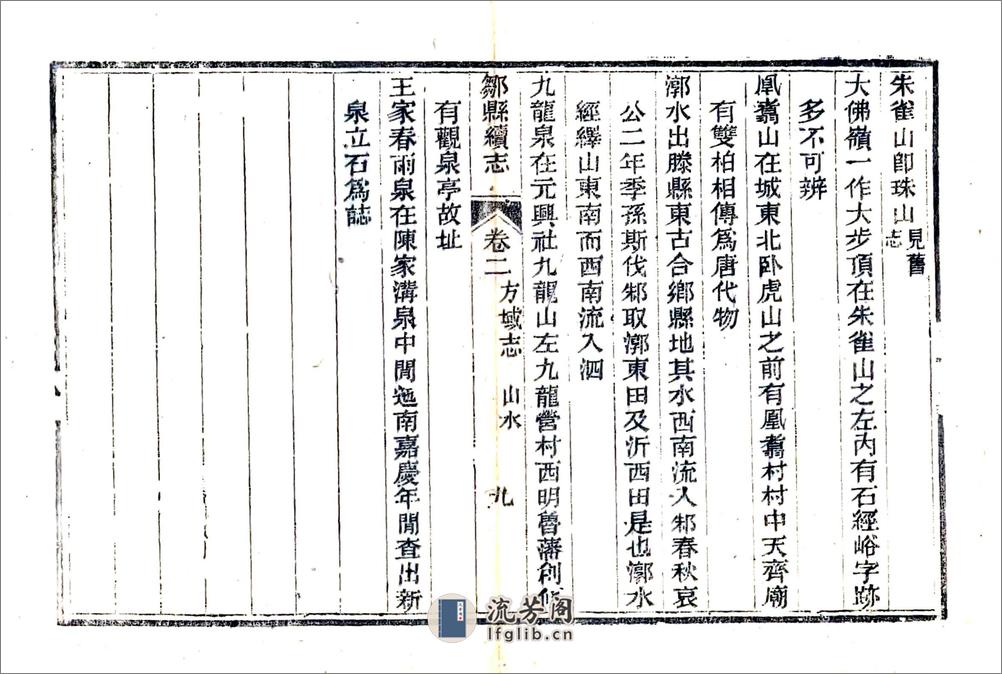 朱雀山卽珠山見舊志
大佛嶺一作大步頂在朱雀山之左內有石經峪字跡
多不可辨
鳳翥山在城東北卧虎山之前有鳳翥村村中天齊廟
有雙柏相傳爲唐代物
漷水出滕縣東古合鄉縣地其水西南流入邾春秋哀
公二年季孫斯伐邾取漷東田及沂西田是也漷水
經繹山東南而西南流入泗
九龍泉在元興社九龍山左九龍營村西明魯藩創修
鄒縣續志 卷二 方域志 山水 九
有觀泉亭故址
王家春雨泉在陳家溝泉中閒迤南嘉慶年閒查出新
泉立石爲誌
流芳阁
lfglib.cn